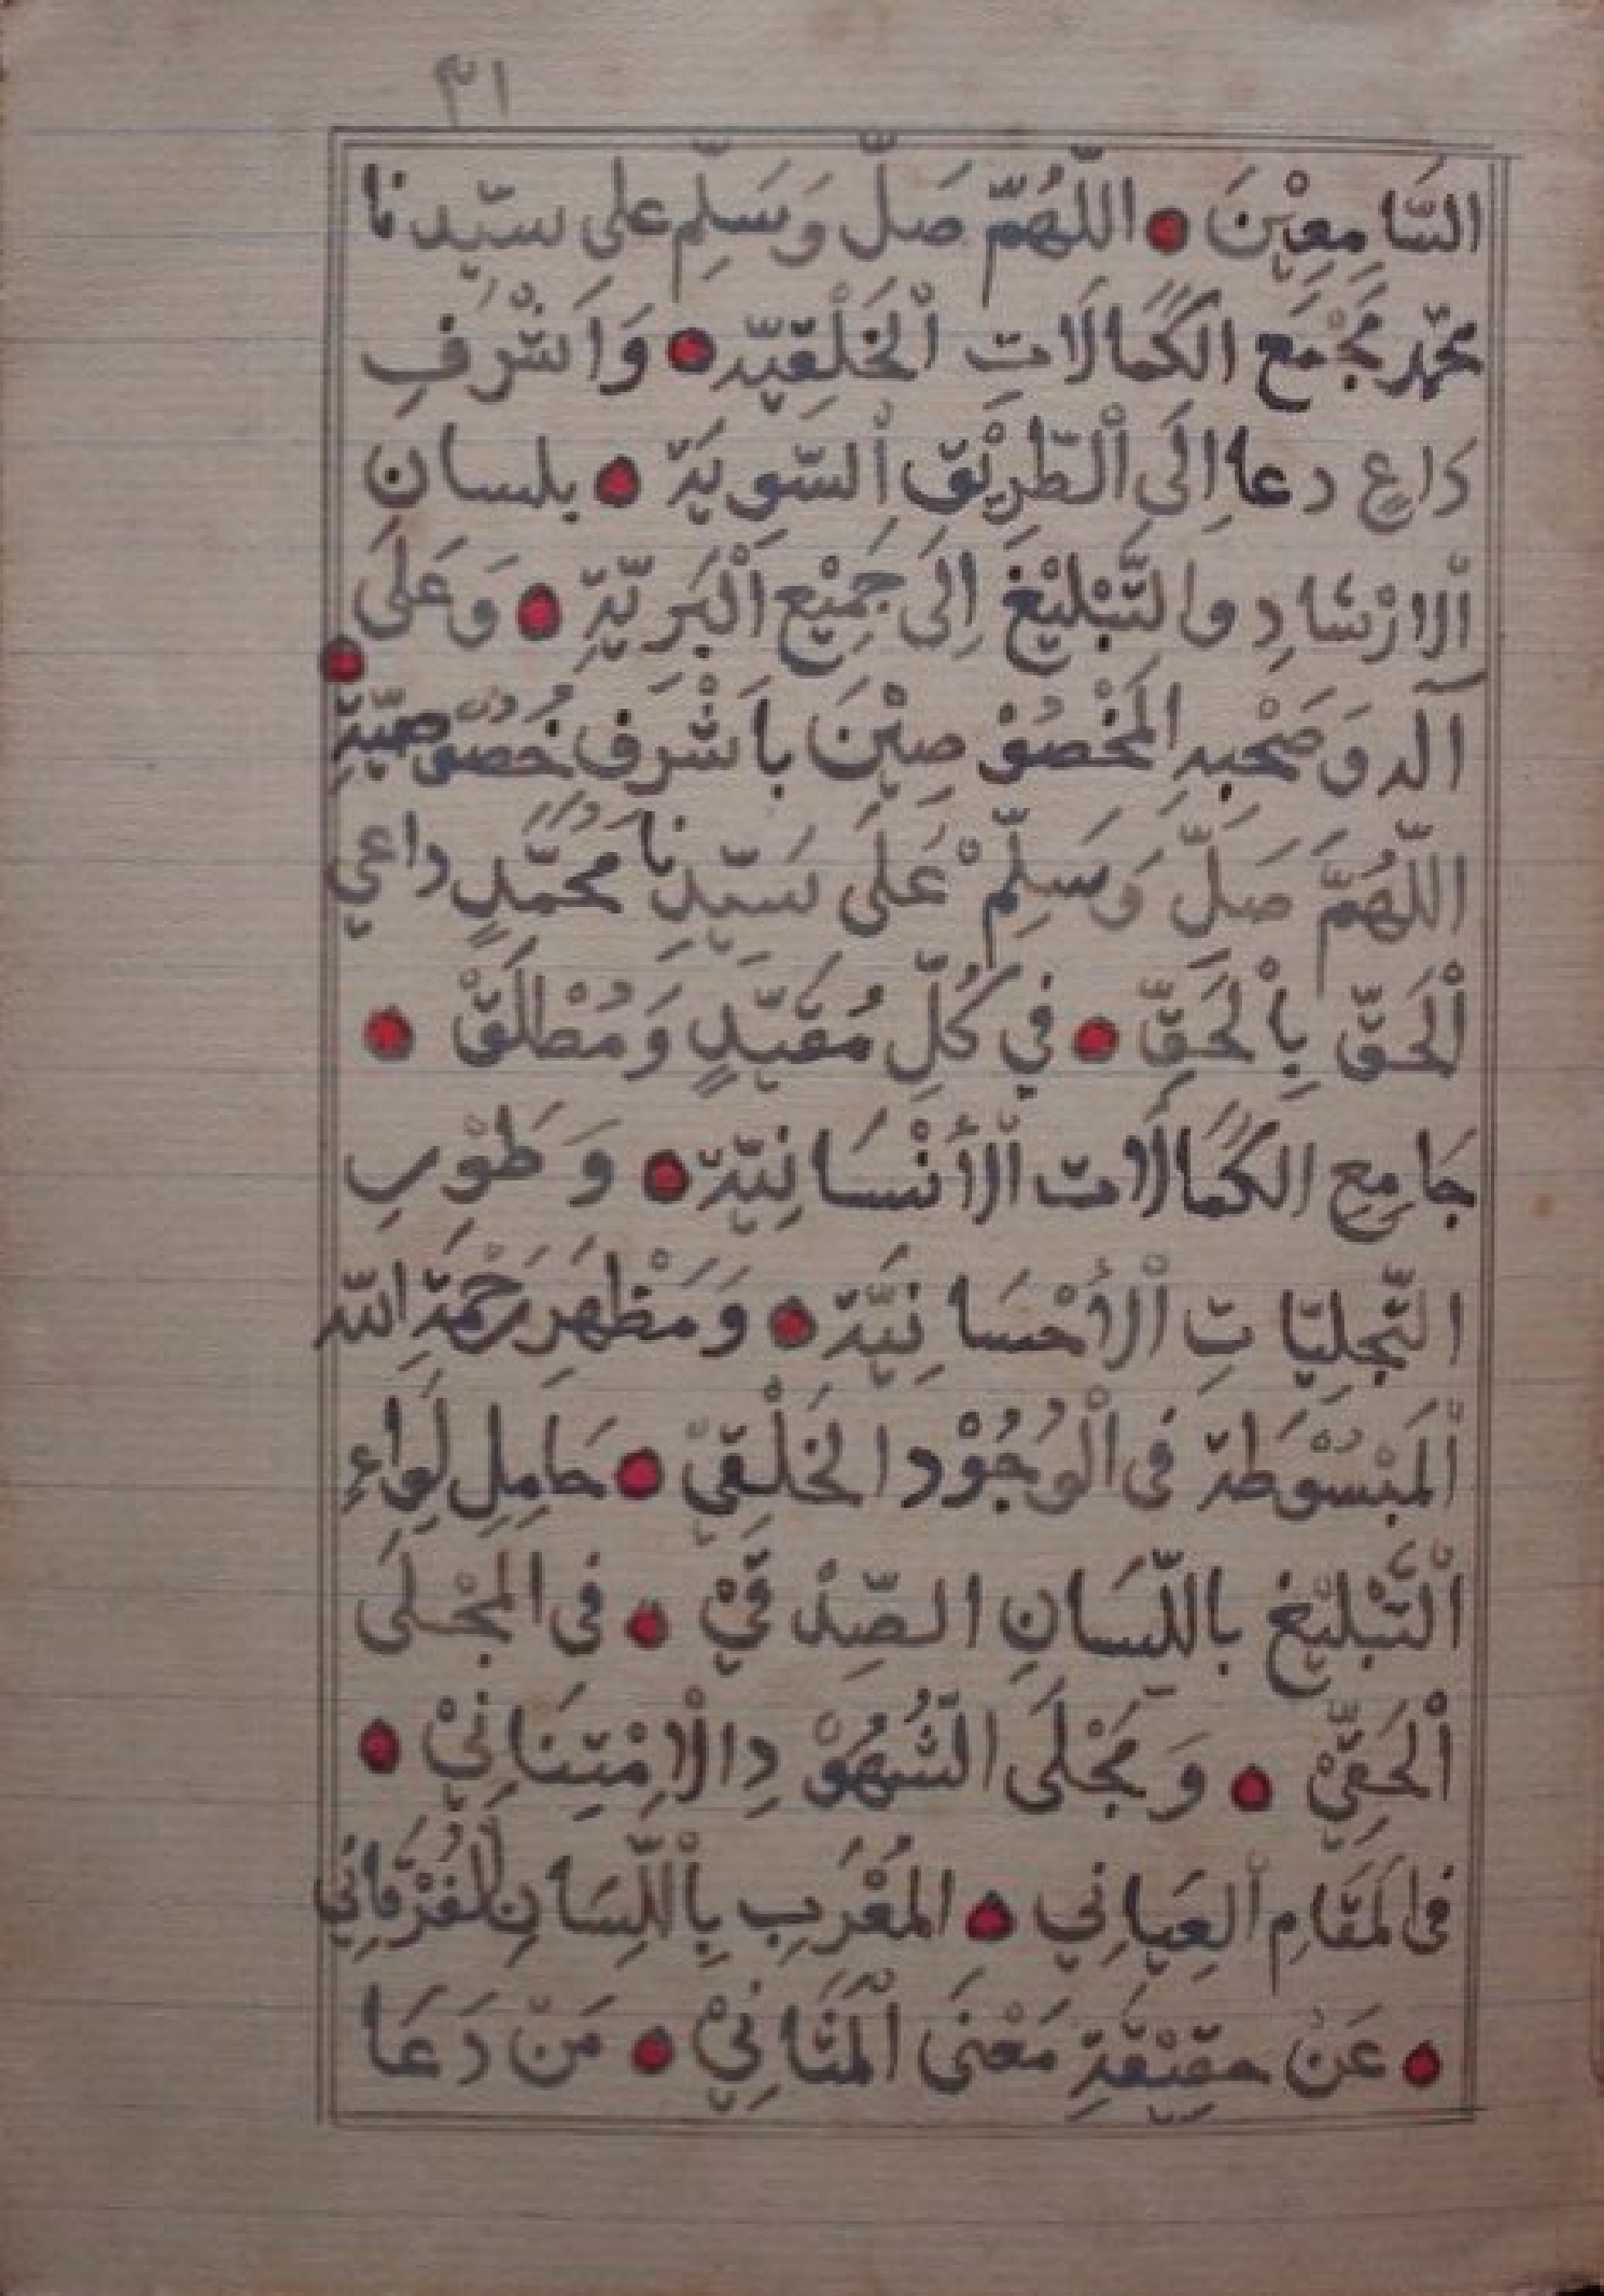 ١٣
السَّامِعِيْنَ اللّهُمّ صَلّ وَسَلِّم على سيّدنا
محمّد مَجْمَع الكَمالَاتِ الْخَلْقيّه وَاَشْرَفِ
دَاعٍ دعا اِلَى الْطّرِيْق السّوِيَة بلسان
الارْشَادِ والتَّبْلِيْغَ اِلَى جَمِيْع الْبَرِيّة وَعَلَى
آله وَصَحْبِه المَخْصُوْصِيْنَ باَشْرَفِ خُصُوْصيّةِ
اللّهُمَّ صَلِّ وَسَلِّمْ عَلَى سَيّدِنَا مُحَمّدٍ داعي
الْحَقّ بِالْحَقِّ في كُلِّ مُقَيّدٍ وَمُطْلَقْ
جَامِعِ الكَمَالَات الْأنْسَانِيّة وَطَوْبِ
التّجلِيّاتِ الْأحْسَانِيَّة وَمَظْهَرِ رَحْمَةِ اللّه
الْمَبْسُوْطَة فى الْوُجُوْد الخَلْقيّ حَامِلِ لِوَاءِ
الْتَبْلِيْغ باللّسَانِ الصِّدْقيْ فى المَجْلَى
الْحَقّيْ وَمَجْلَى الشُّهُوْدِ الْاِمْتِنَانِيْ
فى الْمَقَامِ الْعِيَانِي المُعْرِبِ بِاللِّسَانِ الْفُرْقَانِي
عَنْ حقِيْقَةِ مَعْنَى الْمَثَانِيْ مَنْ دَعَا